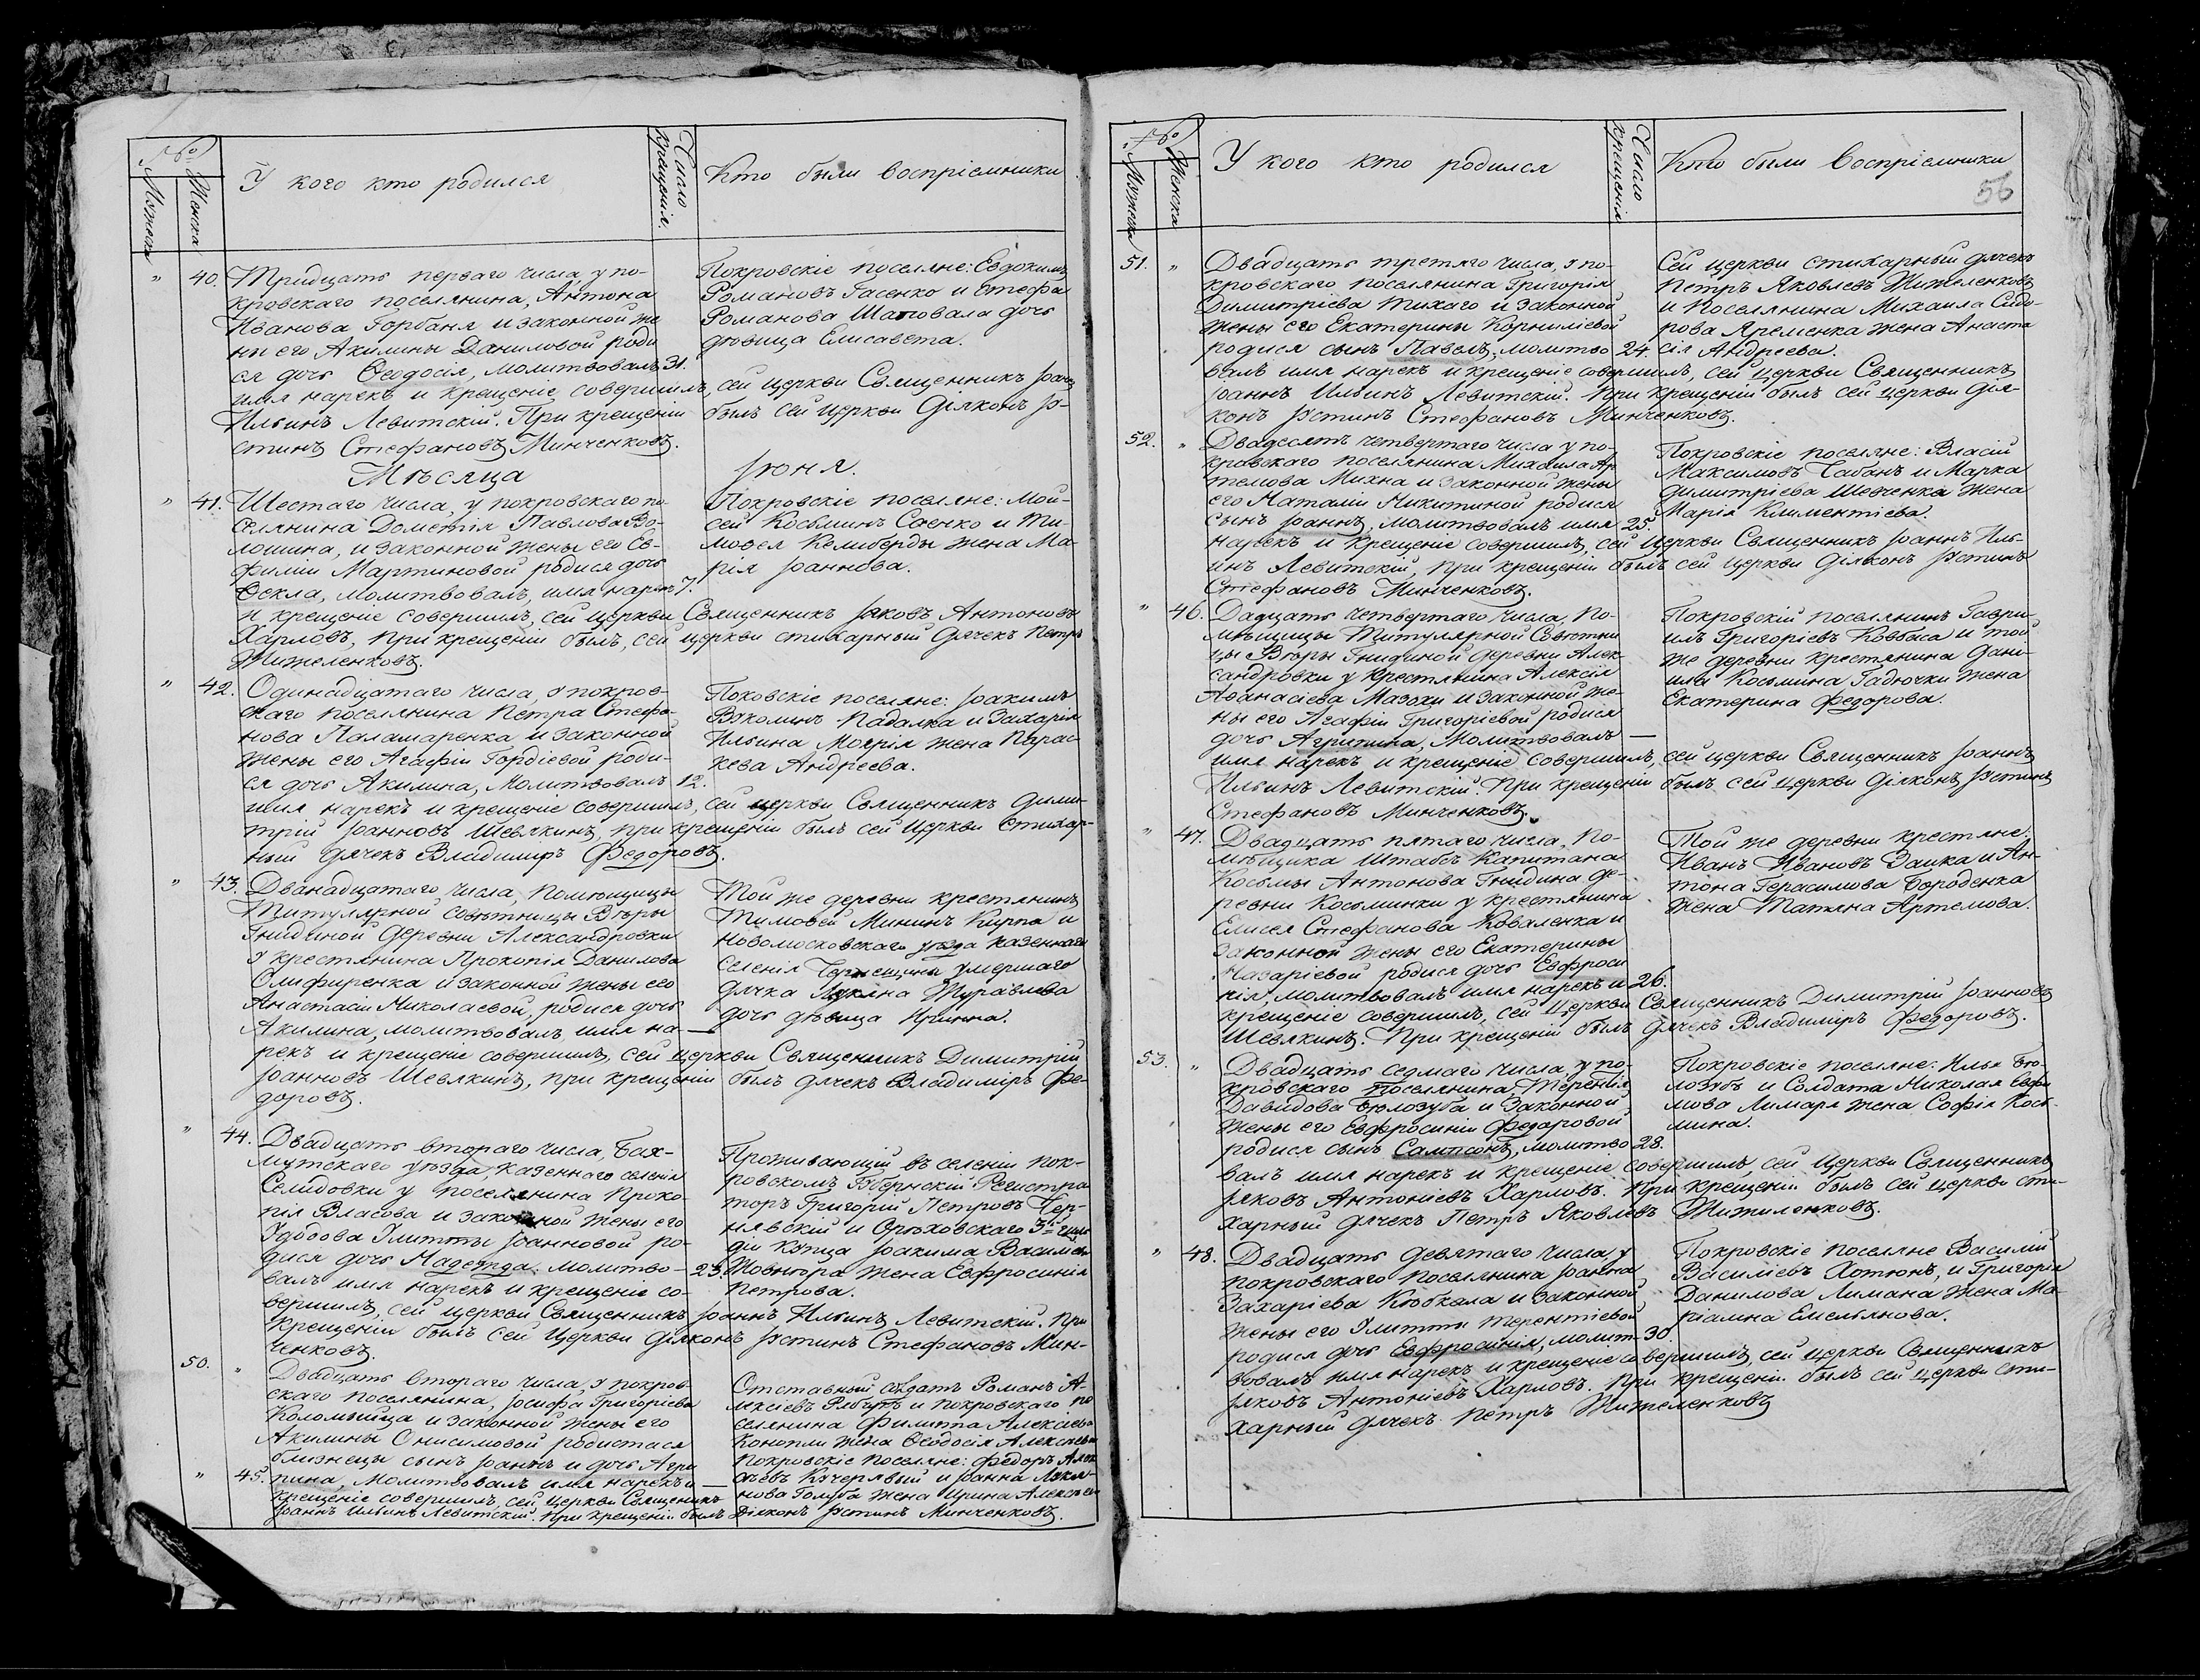 №
Мужеска
Женска
У кого кто родился
Число крещенія.
Кто были воспріемники
" 40. Тридцать перваго числа у по-
кровскаго поселянина, Антона
Иванова Горбаня и законной же
ны его Акилины Даниловой роди
ся дочь Ѳеодосія, молитвовалъ 31.
имя нарекъ и крещеніе совершилъ, сей церкви Священникъ Іоаннъ
Ильинъ Левитскій. При крещеніи былъ сей церкви Діяконъ Іу-
стинъ Стефановъ Минченковъ.
Покровскіе поселяне: Евдокимъ
Романовъ Гасенко и Стефа
Романова Шаповала дочь
дѣвица Елисавета.
Мѣсяца Іюня.
" 41. Шестаго числа, у покровскаго по-
селянина Дометія Павлова Во-
лошина, и законной жены его Ев-
фиміи Мартиновой родися дочь
Ѳекла, молитвовалъ, имя нарекъ 7.
и крещеніе совершилъ, сей церкви Священникъ Іаковъ Антоновъ
Харловъ, при крещеніи былъ, сей церкви стихарный дячекъ Петръ
Жижеленковъ.
Покровскіе поселяне: Мой-
сей Косьминъ Саенко и Ти-
мофея Келиберды жена Ма-
рія Іоаннова.
" 42. Одинадцатаго числа, у покров-
скаго поселянина Петра Стефа-
нова Паламаренка и законной
жены его Агафіи Гордіевой роди-
ся дочь Акилина, молитвовалъ 12.
имя нарекъ и крещеніе совершилъ, сей церкви Священникъ Дими-
трій Іоанновъ Шевякинъ, при крещеніи былъ сей церкви стихар-
ный дячекъ Владиміръ Федоровъ.
Поковскіе поселяне: Іоакимъ
Падалка и Захарія
Ильина жена Парас-
кева Андреева.
" 43. Дванадцатаго числа, помѣщицы
Титулярной совѣтницы Вѣры
Гнидиной деревни Александровки
у крестянина Прокопія Данилова
Олифиренка и законной жены его
Анастасіи Николаевой, родися дочь
Акилина, молитвовалъ имя на- —
рекъ и крещеніе совершилъ, сей церкви Священникъ Димитрій
Іоанновъ Шевякинъ, при крещеніи былъ дячекъ Владиміръ Фе-
доровъ.
Той же деревни крестянинъ
Тимофей Мининъ Кирпа и
Новомосковскаго уѣзда казеннаго
селенія Чернещины умершаго
дячка Лукяна Журавлева
дочь дѣвица Ирина.
" 44. Двадцать втораго числа, Бах-
мутскаго уѣзда, казеннаго селенія
Селидовки у поселянина Проко-
пія Власова и законной жены его
Удодова Улитты Іоанновой ро-
дися дочь Надежда. молитво- 23.
валъ имя нарекъ и крещеніе со-
вершилъ, сей церкви Священникъ Іоаннъ Ильинъ Левитскій. При
крещеніи былъ сей церкви Діяконъ Іустинъ Стефановъ Мин-
ченковъ.
Проживающій въ селеніи пок-
ровскомъ Губернскій Регистра
торъ Григорій Петровъ Чер-
нявскій и Орѣховскаго 3й гиль
діи купца Іоакима Васильева
жена Евфросинія
Петрова.
50. " Двадцать втораго числа, у покров-
скаго поселянина, Іосифа Григоріева
Коломыйца и законной жены его
Акилины Онисимовой родистася
близнецы сынъ Іоаннъ и дочь Агри
" 45. пина, молитвовалъ имя нарекъ и —
крещеніе совершилъ, сей церкви Священникъ
Іоаннъ Ильинъ Левитскій. При крещеніи былъ Діяконъ Іустинъ Минченковъ.
Отставный солдатъ Романъ А-
лексіевъ Рябуха и покровскаго по
селянина Филиппа Алексіева
Конопли жена Ѳеодосія Алексіева
покровскіе поселяне: Федоръ Алек
сіевъ Кучерявый и Іоанна Лукія-
нова Голуба жена Ирина Алексіева
№
Мужеска
Женска
У кого кто родился
Число крещенія
Кто были воспріемники
56
51. " Двадцать третяго числа, у по-
кровскаго поселянина Григорія
Димитріева Тихаго и законной
жены его Екатерины Корниліевой
родися сынъ Павелъ, молитво 24.
валъ имя нарекъ и крещеніе совершилъ, сей церкви Священникъ
Іоаннъ Ильинъ Левитскій. при крещеніи былъ сей церкви Дія-
конъ Іустинъ Стефановъ Минченковъ.
Сей церкви стихарный дячекъ
Петръ Яковлевъ Жижеленковъ
и Поселянина Михаила Сидо-
рова Яременка жена Анаста
сія Андреева.
52. " Двадесять четвертаго числа у по-
кровскаго поселянина Михаила Ар
темова Михна и законной жены
его Наталіи Никитиной родися
сынъ Іоаннъ, молитвовалъ имя 25.
нарекъ и крещеніе совершилъ, сей церкви Священникъ Іоаннъ Иль-
инъ Левитскій, при крещеніи былъ сей церкви Діяконъ Іустинъ
Стефановъ Минченковъ.
Покровскіе поселяне: Власій
Максимовъ Чабанъ и Марка
Димитріева Шевченка жена
Марія Климентіева.
" 46. Дадцать четвертаго числа, По-
мѣщицы Титулярной Совѣтни
цы Вѣры Гнидиной деревни Алек-
сандровки у крестянина Алексія
Афанасіева Мазохи и законной же-
ны его Агафіи Григоріевой родися
дочь Агрипина, молитвовалъ —
имя нарекъ и крещеніе совершилъ, сей церкви Священникъ Іоаннъ
Ильинъ Левитскій. При крещеніи былъ сей церкви Діяконъ Іустинъ
Стефановъ Минченковъ.
Покровскій поселянинъ Гаври-
илъ Григоріевъ Ковбаса и той
же деревни крестянина Дані-
ила Косьмина Гадючки жена
Екатерина Федорова.
" 47. Двадцать пятаго числа, по-
мѣщика Штабсъ Капитана
Косьмы Антонова Гнидина де-
ревни Косьминки у крестянина
Елисея Стефанова Коваленка и
законной жены его Екатерины
Назаріевой родися дочь Евфроси
нія, молитвовалъ имя нарекъ и 26.
крещеніе совершилъ, сей церкви Священникъ Димитрій Іоанновъ
Шевякинъ. При крещеніи былъ дячекъ Владиміръ Федоровъ.
Той же деревни крестяне:
Иванъ Ивановъ Заика и Ан-
тона Герасимова Бороденка
жена Татяна Артемова.
53. " Двадцать седмаго числа, у по-
кровскаго поселянина, Терентія
Давидова Бѣлозуба и законной
жены его Евфросиніи Федаровой
родися сынъ Сампсонъ, молитво 28.
валъ имя нарекъ и крещеніе совершилъ, сей церкви Священникъ
Іяковъ Антоніевъ Харловъ. При крещеніи былъ сей церкви сти-
харный дячекъ Петръ Яковлевъ Жижиленковъ.
Покровскіе поселяне: Илья Бѣ-
лозубъ и Солдата Николая Евфи
мова Лимаря жена Софія Кось-
мина.
" 48. Двадцать девятаго числа, у
покровскаго поселянина Іоанна
Захаріева Кобкала и законной
жены его Улитты Терентіевой
родися дочь Евфросинія, молит- 30.
вовалъ имя нарекъ и крещеніе совершилъ, сей церкви Священникъ
Іяковъ Антоніевъ Харловъ. при крещеніи былъ сей церкви сти-
харный дячекъ Петръ Жижеленковъ
Покровскіе поселяне Василій
Василіевъ Хотюнъ, и Григорія
Данилова Лимана жена Ма-
ріамна Емельянова.